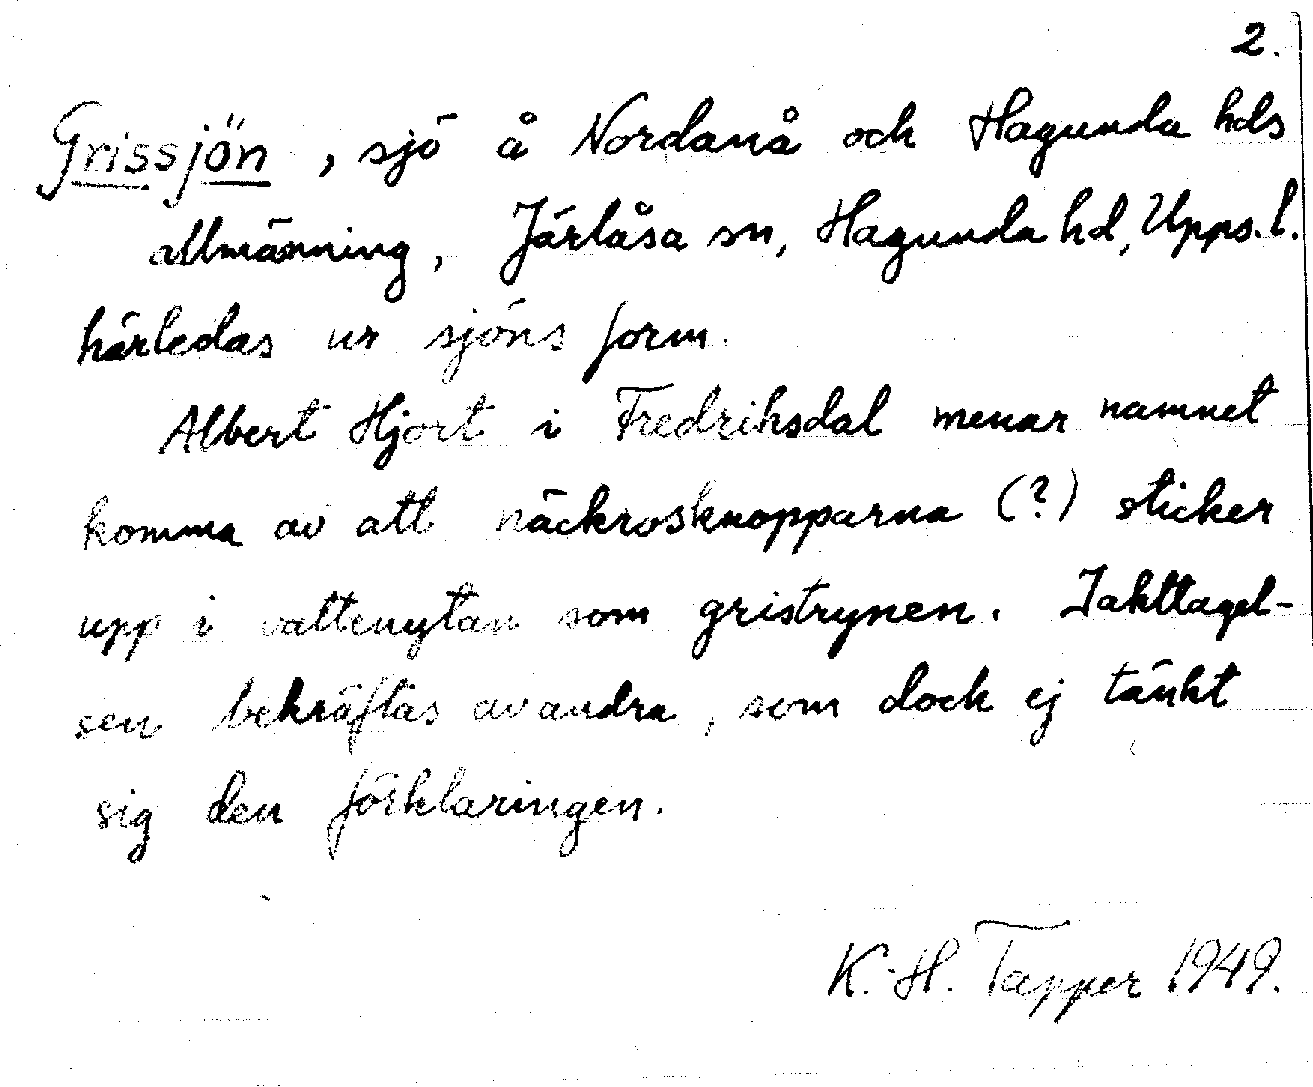 2.
Grissjön, sjö å Nordanå och Hagunda hds
allmänning, Järlåsa sn, Hagunda hd, Upps. l.
härledas ur sjöns form.
Albert Hjort i Fredriksdal menar namnet
komma av att näckrosknopparna (?) sticker
upp i vattenytan som gristrynen. Iakttagel-
sen bekräftas av andra, som dock ej tänkt
sig den förklaringen.
K.-H. Tapper 1949.